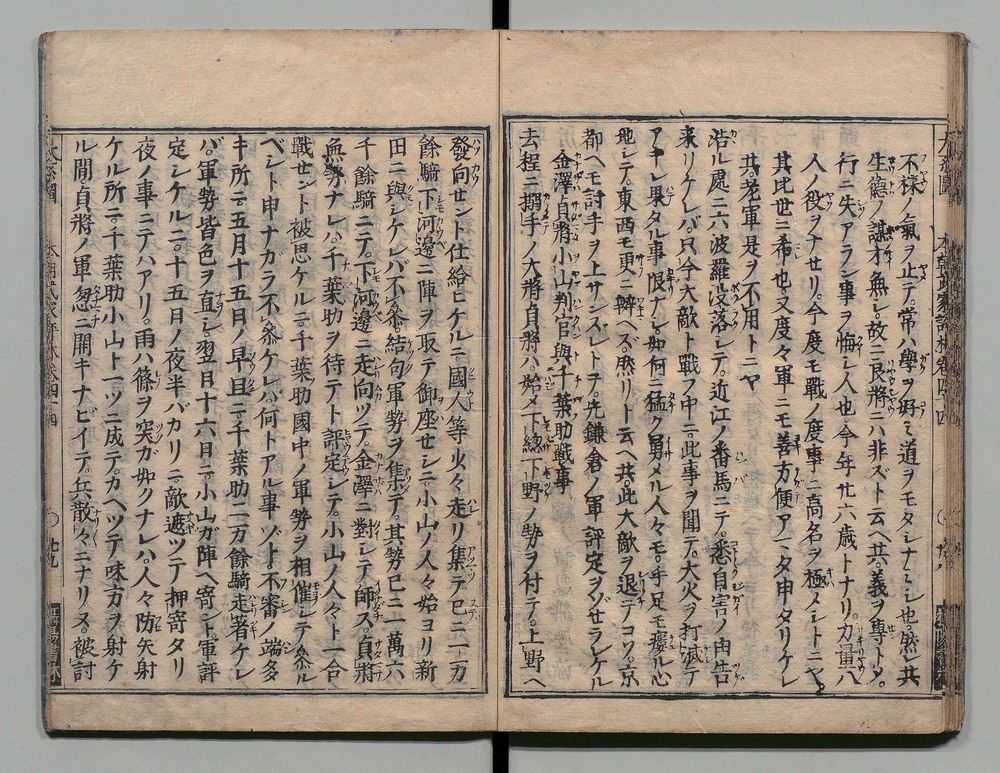 不祥ノ氣ヲ止テ常ハ學ヲ好ミ道ヲモタシナミシ也然レ共
生德ノ謀才無シ故ニ良將ニハ非ズト云ヘ共義ヲ專トシ
行ニ失アラン事ヲ悔シ人也今年廿六歳トナリ力量八
人ノ役ヲナセリ今度モ戰ノ度事ニ高名ヲ極メシトニヤ
其比世ニ希也又度々軍ニモ善方便アマタ申タリケレ
共老軍是ヲ不用トニヤ
浩ル處ニ六波羅没落シテ近江ノ番馬ニテ悉自害ノ由告
來リケレバ只今大敵ト戰フ中ニ此事ヲ聞テ大火ヲ打滅テ
アキレ果タル事限ナシ如何ニ猛ク勇メル人々モ手足モ癭ル心
地シテ東西モ更ニ辨ヘズ然リト云ヘ共此大敵ヲ退テコソ京
都ヘモ討手ヲ上サンズレトテ先鎌倉ノ軍評定ヲゾセラレケル
金澤貞將小山判官與千葉助戰事
去程ニ搦手ノ大將貞將ハ始メ下總下野ノ勢ヲ付テ上野ヘ
發向セント仕給ヒケルニ國人等少々走リ集テ已ニ一万
餘騎下河邊ニ陣ヲ取テ御座セシニ小山ノ人々始ヨリ新
田ニ與シケレバ不叅結句軍勢ヲ集テ其勢已ニ一萬六
千餘騎ニテ下河邊ニ走向ツテ金澤ニ對シテ師ス貞將
無勢ナレバ千葉助ヲ待テト評定シテ小山ノ人々ト一合
戰セント被思ケルニ千葉助國中ノ軍勢ヲ相催シテ叅ル
ベシト申ナガラ不叅ケレハ何トアル事ゾト不審ノ端多
キ所ニ五月十五日ノ早旦ニ千葉助二万餘騎走著ケレ
バ軍勢皆色ヲ直シ翌日十六日ニ小山ガ陣ヘ寄ント軍評
定シケルニ十五日ノ夜半バカリニ敵遮ツテ押寄タリ
夜ノ事ニテハアリ雨ハ篠ヲ突ガ如クナレハ人々防矢射
ケル所ニ千葉助小山ト一ツニ成テカヘツテ味方ヲ射ケ
ル間貞將ノ軍忽ニ開キナビイテ兵散々ニナリヌ被討